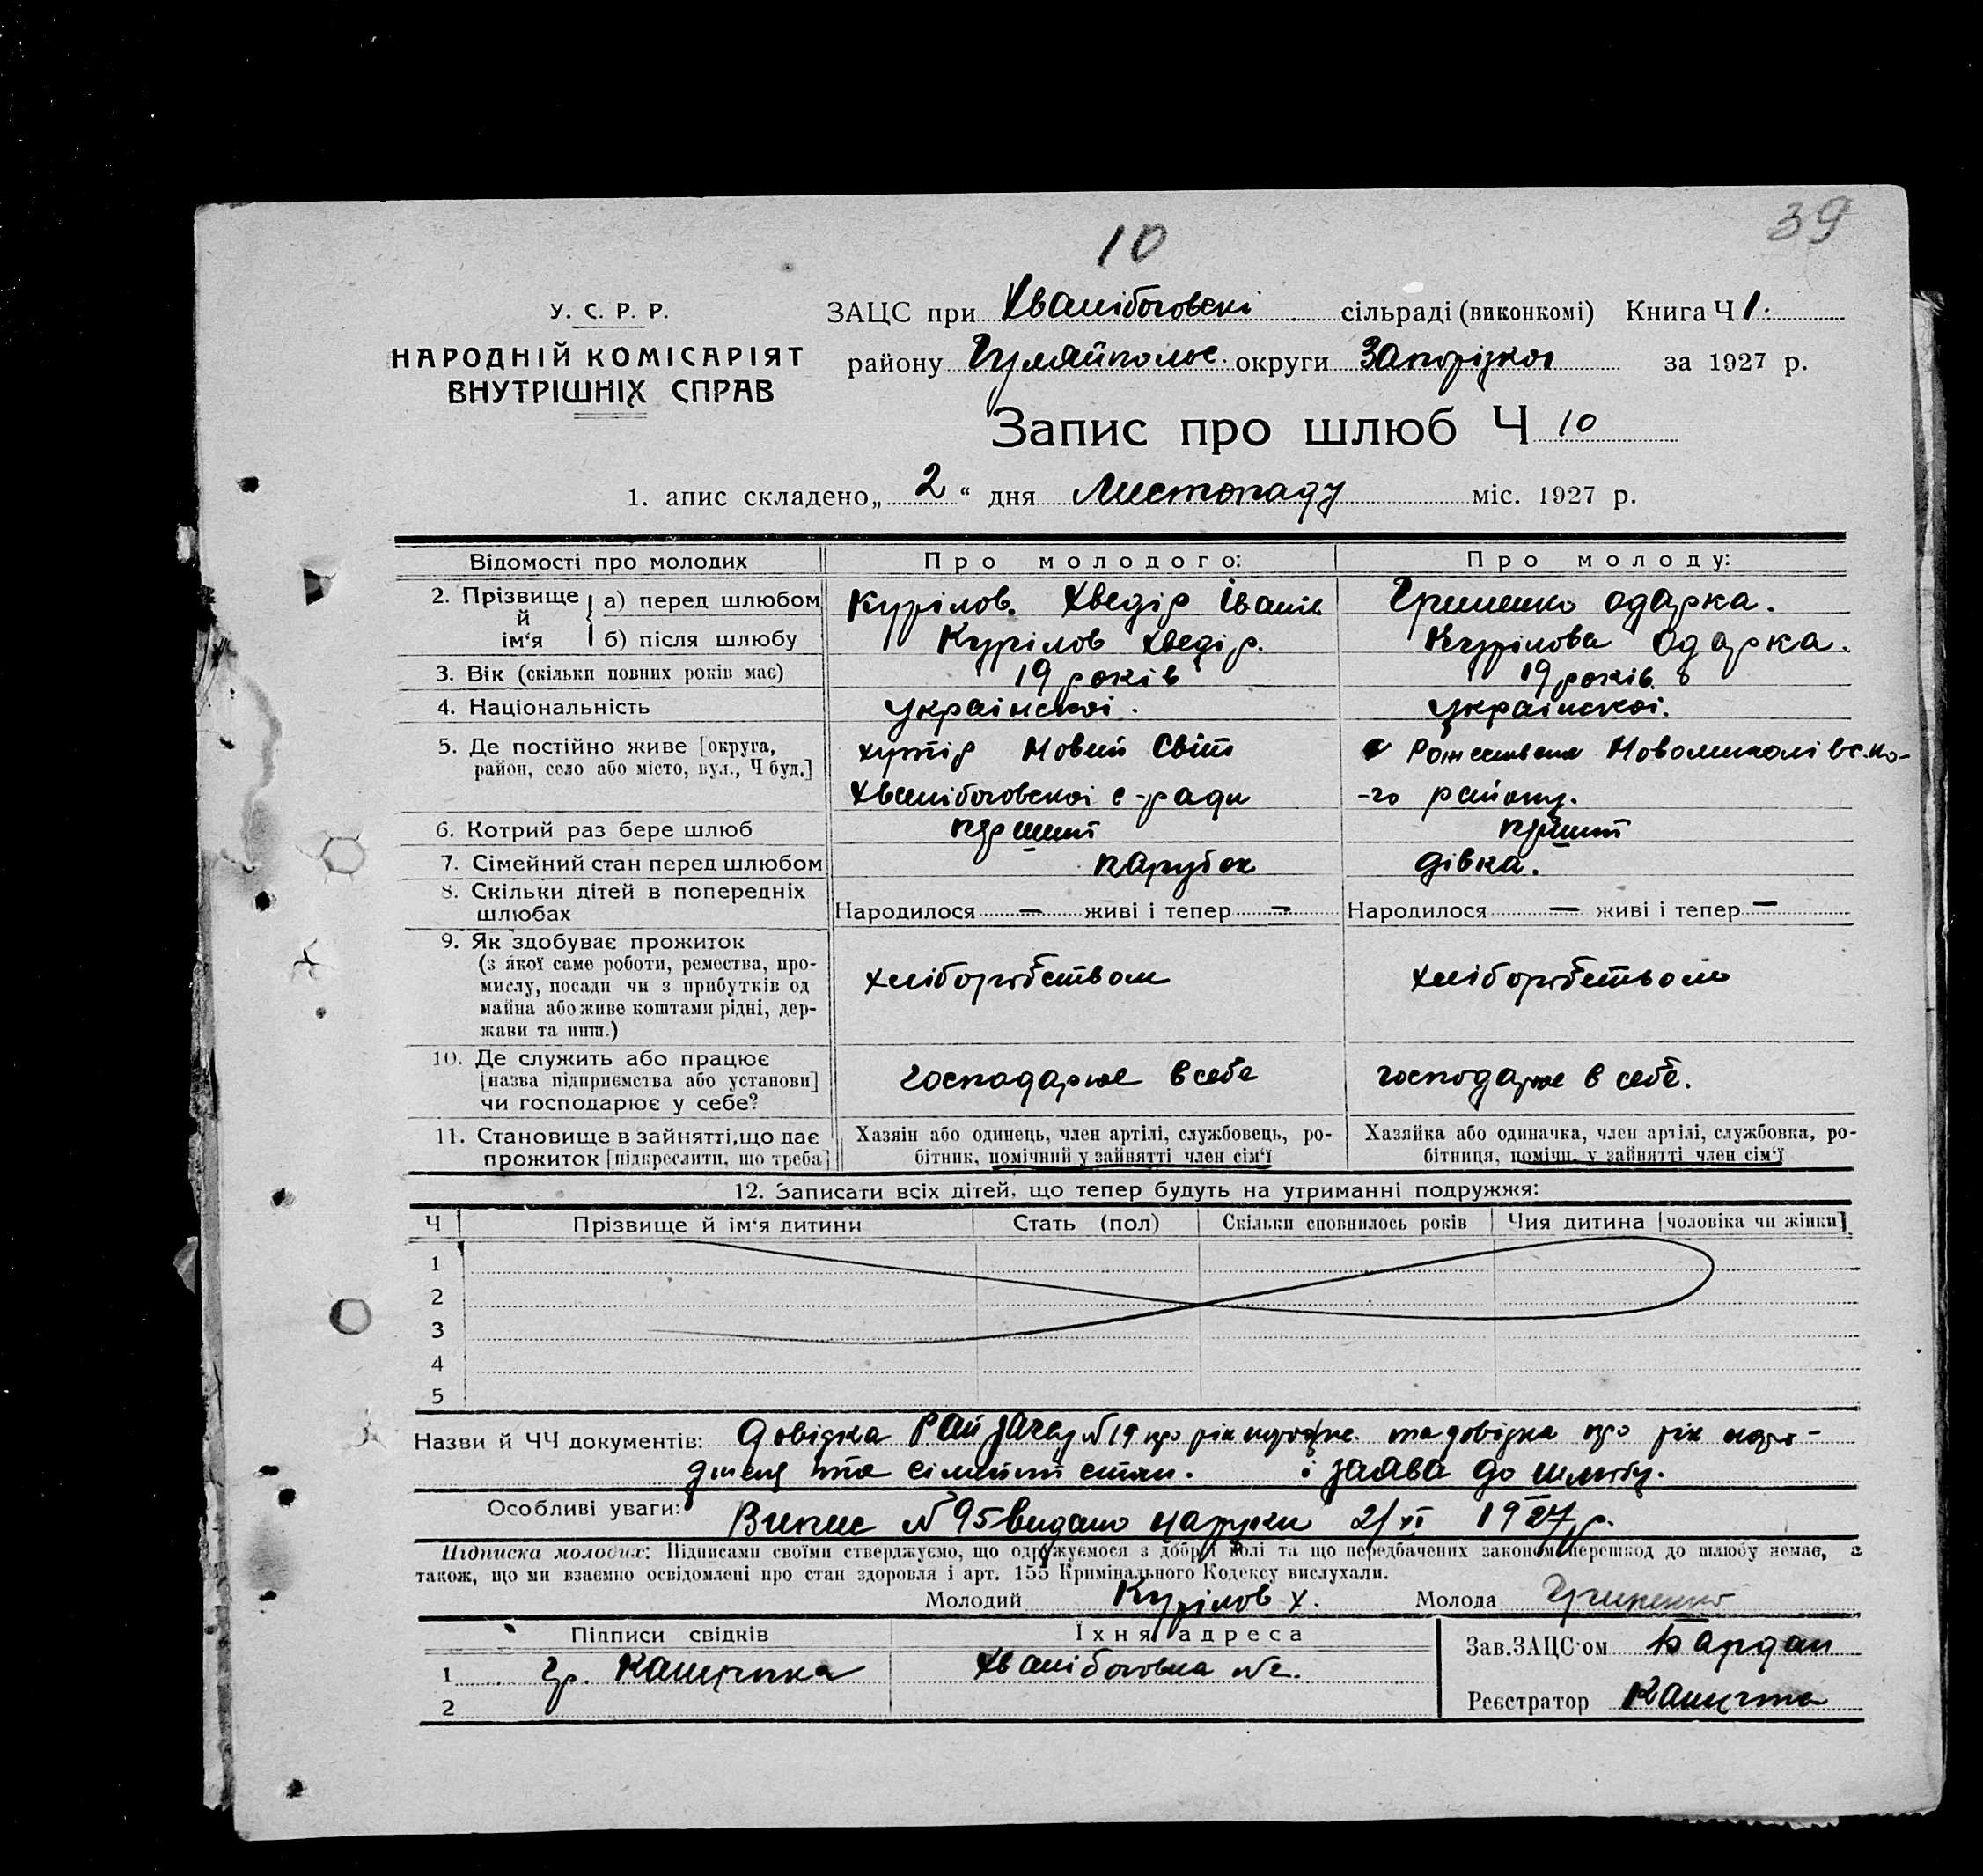 39
10
У. С. Р. Р.
НАРОДНІЙ КОМІСАРІЯТ
ВНУТРІШНІХ СПРАВ
ЗАЦС при Хвалібоговскі сільраді (виконкомі) Книга Ч 1.
району Гуляйполье. округи Запорізкоі за 1927 р.
Запис про шлюб Ч 10
1. апис складено „ 2 “ дня Листопаду міс. 1927 р.
Відомості про молодих Про молодого: Про молоду:
2. Прізвище й ім‘я а) перед шлюбом Курілов. Хведір Іванів Гриненко Одарка.
б) після шлюбу Курілов Хведір. Курілова Одарка.
3. Вік (скільки повних років має) 19 років 19 років
4. Національність Украінскоі. Украінскоі.
5. Де постійно живе [округа, район, село або місто, вул., Ч буд.] хутір Новий Світ Новомиколівско-
Хвалібоговскоі с-ради -го району.
6. Котрий раз бере шлюб перший перший
7. Сімейний стан перед шлюбом парубок дівка.
8. Скільки дітей в попередніх шлюбах Народилося — живі і тепер — Народилося — живі і тепер —
9. Як здобуває прожиток
(з якої саме роботи, ремества, про-
мислу, посади чи з прибутків од
майна або живе коштами рідні, дер-
жави та инш.)
хліборобством хліборобством
10. Де служить або працює
[назва підприємства або установи]
чи господарює у себе?
господарює в себе господарює в себе.
11. Становище в зайнятті, що дає
прожиток [підкреслити, що треба]
Хазяїн або одинець, член артілі, службовець, ро-
бітник, помічний у зайнятті член сім‘ї
Хазяйка або одиначка, член артілі, службовка, ро-
бітниця, помічн. у зайнятті член сім‘ї
12. Записати всіх дітей, що тепер будуть на утриманні подружжя:
Ч Прізвище й ім‘я дитини Стать (пол) Скільки сповнилось років Чия дитина [чоловіка чи жінки]
1
2
3
4
5
Назви й ЧЧ документів: Довідка № 19 про рік та довідка про рік наро-
дженя та сімейний стан. і заява до шлюбу.
Особливі уваги: Випис № 95 видано на руки 2/XI 1927 р.
Підписка молодих: Підписами своїми стверджуємо, що одружуємося з доброї волі та що передбачених законом перешкод до шлюбу немає, а
також, що ми взаємно освідомлені про стан здоровля і арт. 155 Кримінального Кодексу вислухали.
Молодий Курілов Х. Молода Гриненко
Підписи свідків Їхня адреса
Зав. ЗАЦС‘ом
1 гр. Хвалібоговка
2
Реєстратор